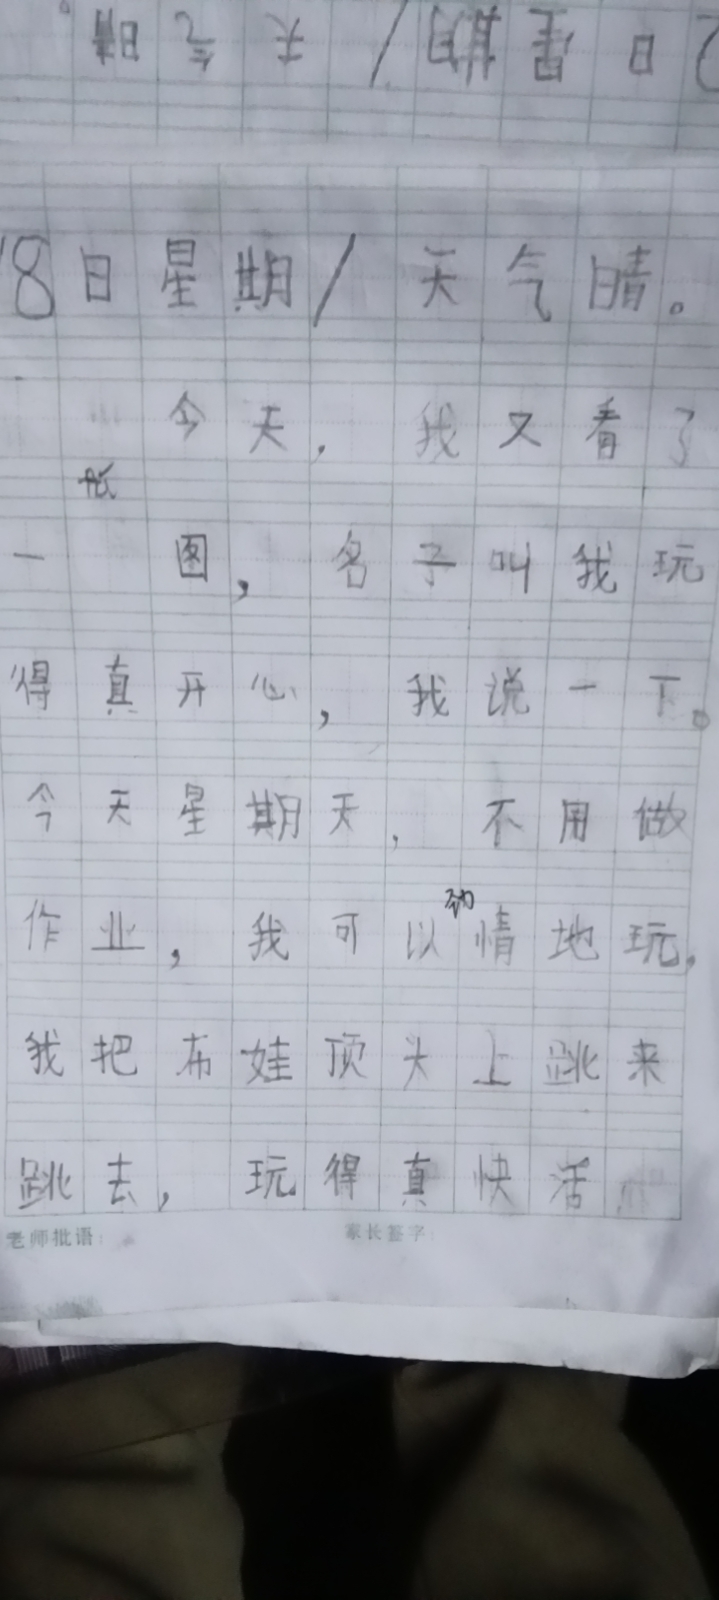 18日星期/ 天气晴。
今天，我又看了
一 图，名子叫我玩
得真开心，我说一下。
今天星期天，不用做
作业，我可以 情地玩，
我把布娃顶头上跳来
跳去，玩得真快活
老师批语： 家长签字：